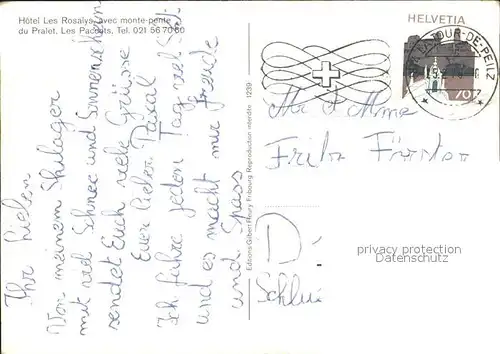 Hôtel Les Rosalys avec monte-pente
du Pralet. Les Paccots, Tel. 021 56 70 60
Ihr Lieben
Von meinem Skilager
mit viel Schnee und Sonnenschein
sendet Euch viele Grüsse
Euer lieber Pascal
Ich fahre jeden Tag viel Ski
und es macht mir Freude
und Spass
Editions Gilbert Fleury Fribourg Reproduction interdite 1239
HELVETIA
LA TOUR-DE-PEILZ
70
Mr & Mme
Fritz
D-
privacy protection
Datenschutz